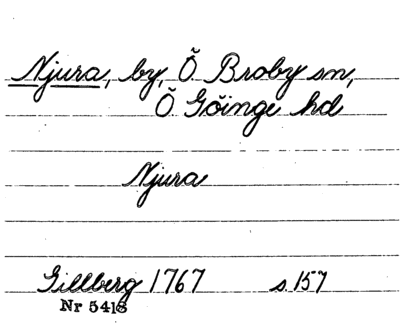 Njura, by, Ö Broby sn,
Ö Göinge hd
Njura
Gillberg 1767 s 157
Nr 5418